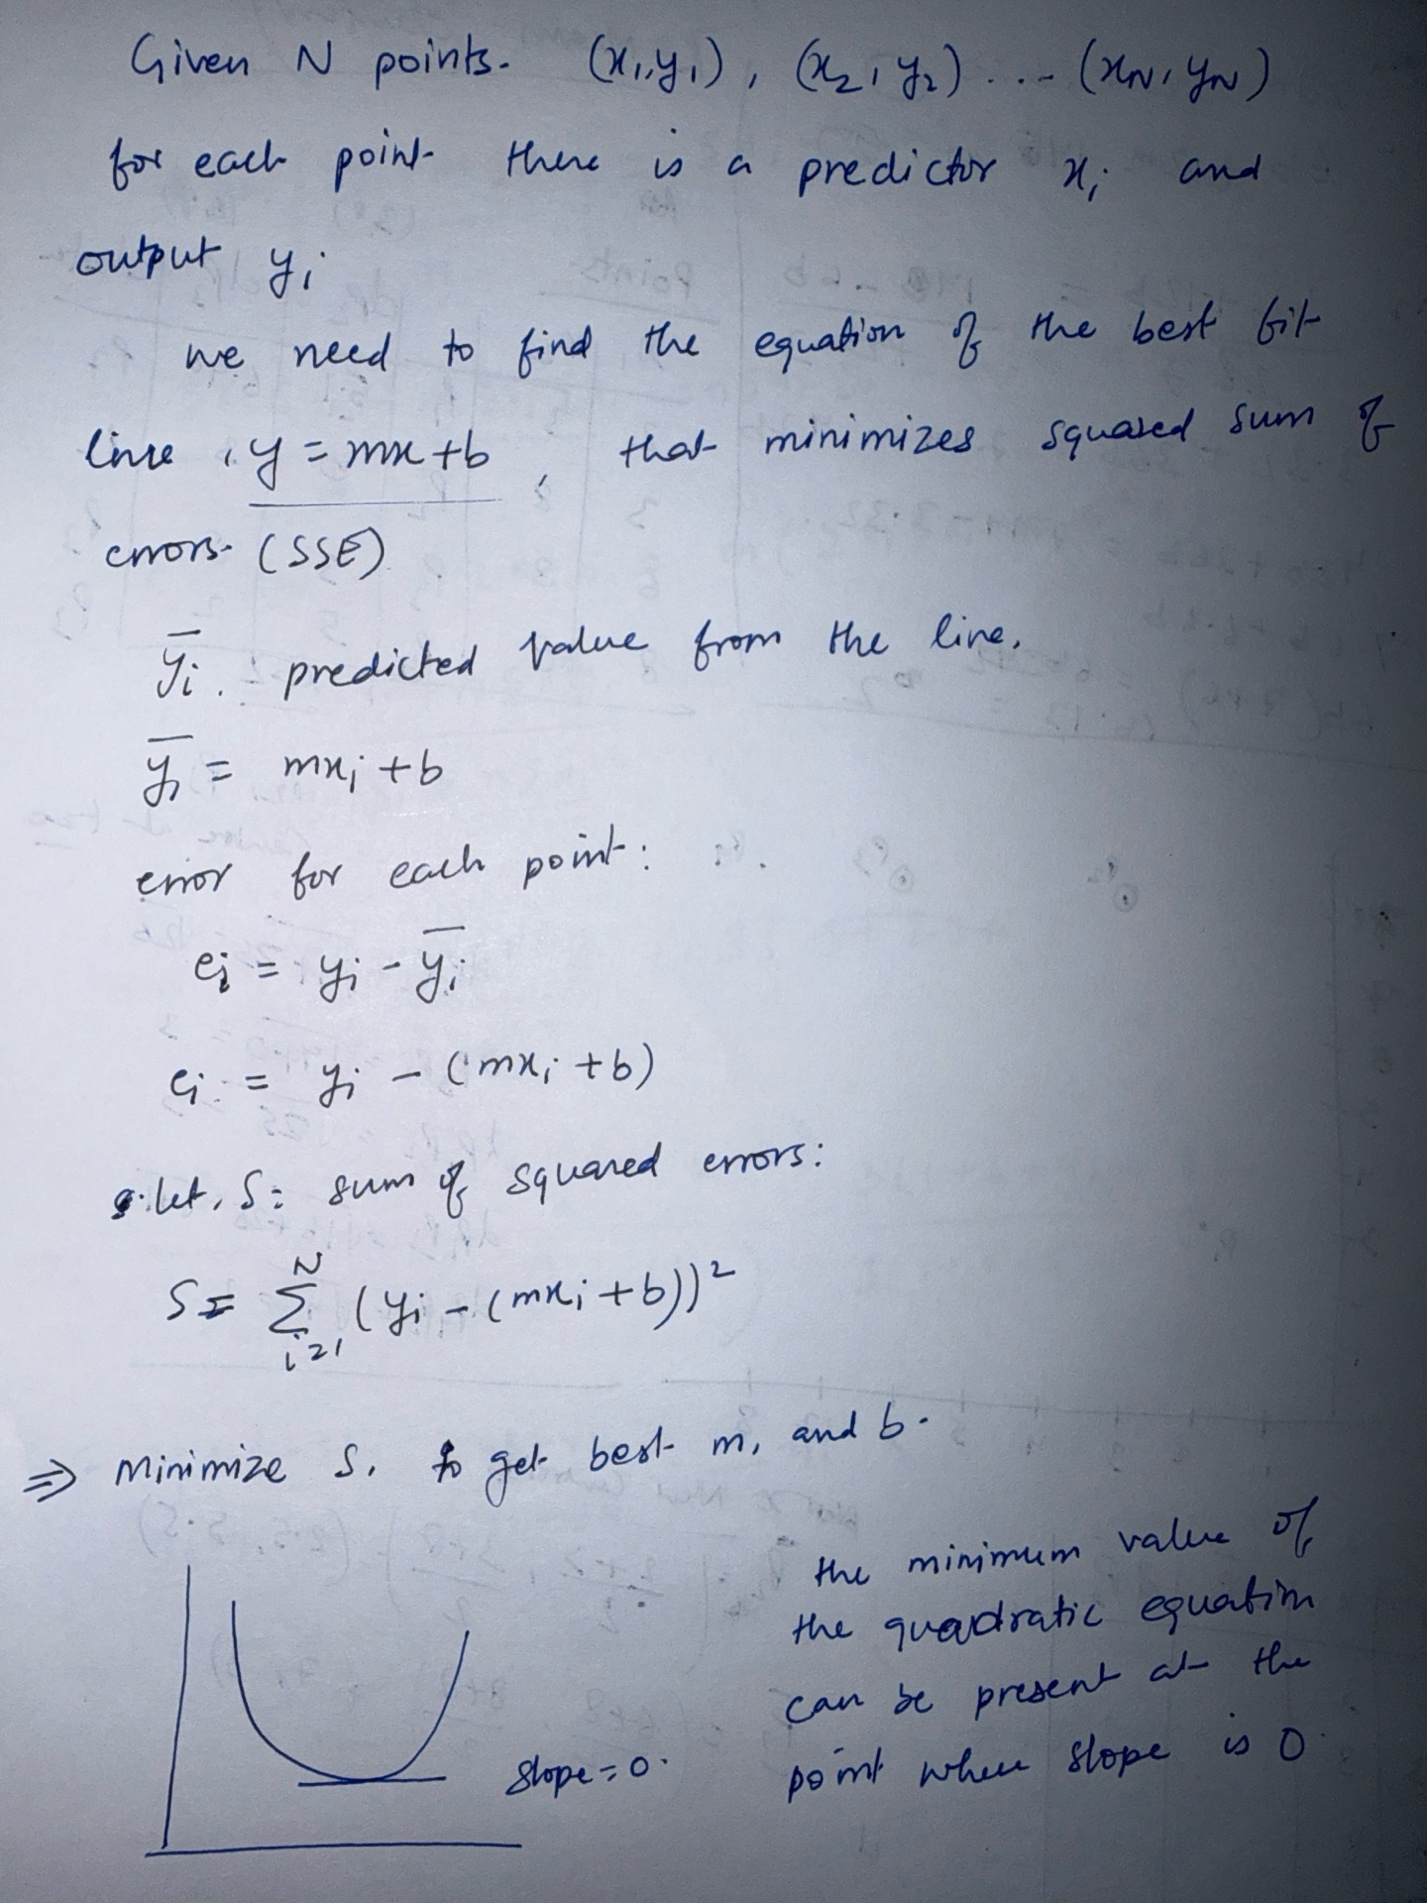 Given N points. (x₁,y₁), (x₂,y₂) ... (x_N,y_N)
for each point there is a predictor xᵢ and
output yᵢ
we need to find the equation of the best fit
line, y = mx+b, that minimizes squared sum of
errors (SSE)
ȳᵢ : predicted value from the line.
ȳᵢ = mxᵢ +b
error for each point:
eᵢ = yᵢ - ȳᵢ
eᵢ = yᵢ - (mxᵢ +b)
let, S= sum of squared errors:
S = ∑_{i=1}^{N} (yᵢ - (mxᵢ +b))²
⇒ Minimize S, to get best m, and b.
the minimum value of
the quadratic equation
can be present at the
point where slope is 0.
slope = 0.